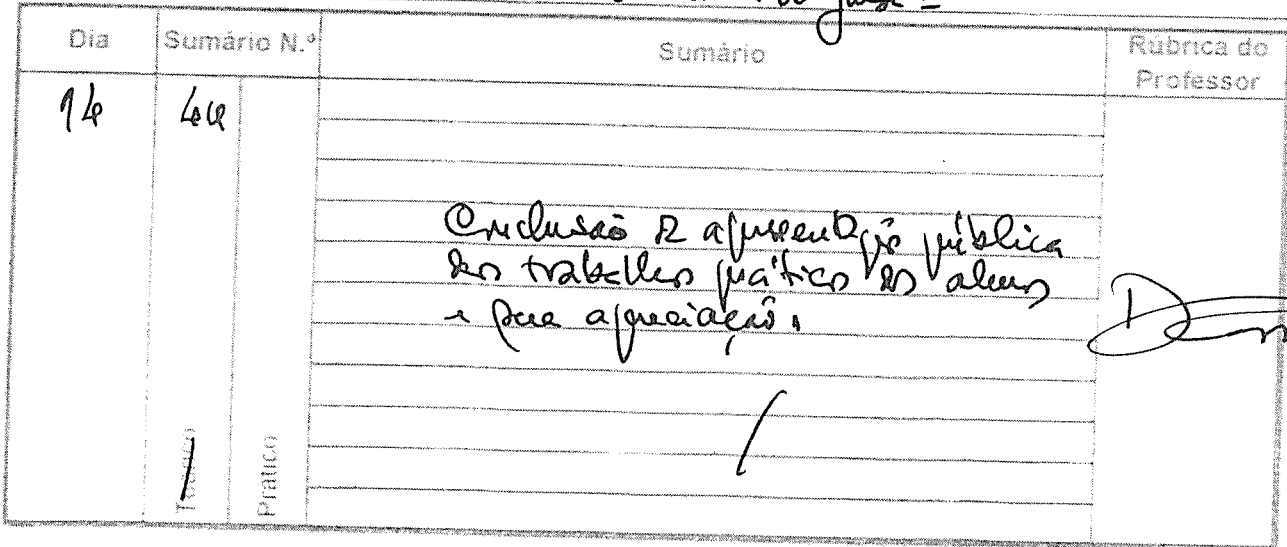 Dia Sumário N.º Sumário Rúbrica do Professor
14 44
Conclusão e apresentação pública
dos trabalhos práticos dos alunos
e sua apreciação.
Teórico
Prático